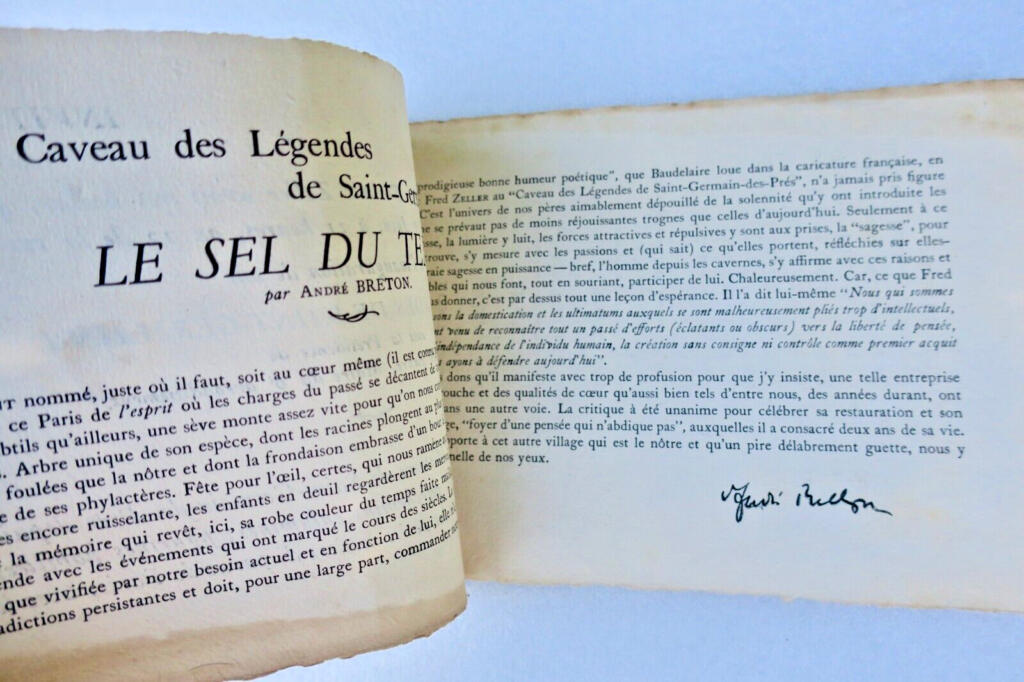 Caveau des Légendes
de Saint-Ger
LE SEL DU TE
par André BRETON.
nommé, juste où il faut, soit au cœur même (il est
ce Paris de l'esprit où les charges du passé se décantent de
btils qu'ailleurs, une sève monte assez vite pour qu'on nous
. Arbre unique de son espèce, dont les racines plongent au
foulées que la nôtre et dont la frondaison embrasse d'un bout
e de ses phylactères. Fête pour l'œil, certes, qui nous ramène
es encore ruisselante, les enfants en deuil regardèrent les
la mémoire qui revêt, ici, sa robe couleur du temps faite
nde avec les événements qui ont marqué le cours des siècles.
que vivifiée par notre besoin actuel et en fonction de lui, elle
adictions persistantes et doit, pour une large part, commander
prodigieuse bonne humeur poétique", que Baudelaire loue dans la caricature française, en
Fred ZELLER au "Caveau des Légendes de Saint-Germain-des-Prés", n'a jamais pris figure
C'est l'univers de nos pères aimablement dépouillé de la solennité qu'y ont introduite les
ne se prévaut pas de moins réjouissantes trognes que celles d'aujourd'hui. Seulement à ce
sse, la lumière y luit, les forces attractives et répulsives y sont aux prises, la "sagesse", pour
rouve, s'y mesure avec les passions et (qui sait) ce qu'elles portent, réfléchies sur elles-
raie sagesse en puissance — bref, l'homme depuis les cavernes, s'y affirme avec ces raisons et
bles qui nous font, tout en souriant, participer de lui. Chaleureusement. Car, ce que Fred
us donner, c'est par dessus tout une leçon d'espérance. Il l'a dit lui-même "Nous qui sommes
sons la domestication et les ultimatums auxquels se sont malheureusement pliés trop d'intellectuels,
nt venu de reconnaître tout un passé d'efforts (éclatants ou obscurs) vers la liberté de pensée,
indépendance de l'individu humain, la création sans consigne ni contrôle comme premier acquit
ayons à défendre aujourd'hui".
dons qu'il manifeste avec trop de profusion pour que j'y insiste, une telle entreprise
ouche et des qualités de cœur qu'aussi bien tels d'entre nous, des années durant, ont
ans une autre voie. La critique a été unanime pour célébrer sa restauration et son
ge, "foyer d'une pensée qui n'abdique pas", auxquelles il a consacré deux ans de sa vie.
pporte à cet autre village qui est le nôtre et qu'un pire délabrement guette, nous y
nelle de nos yeux.
André Breton